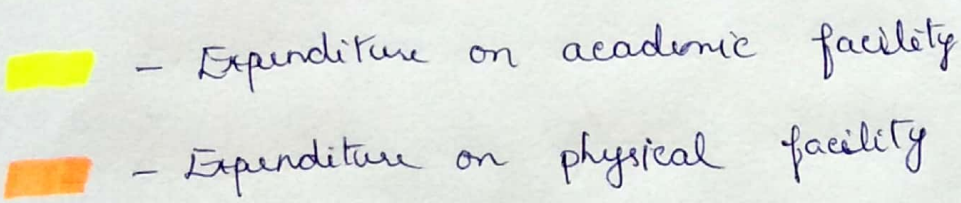 - Expenditure on academic facility
- Expenditure on physical facility